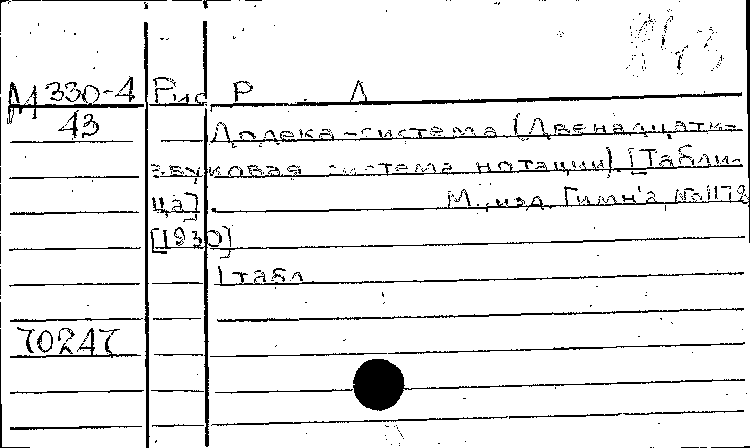 М 330-4 Рис Р Л
43 Додека-система (Двенадцати-
звуковая система нотации). [Табли-
ца]. М., изд. Гимн'а, No 1178
[1930]
1 табл.
70247